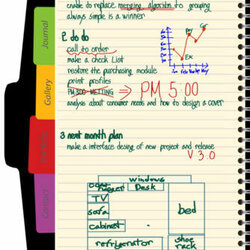 enable to replace merging algorithm to grouping
always simple is a winner
2 do do
call to order
make a check List
restore the purchasing module
print profiles
PM 3:00 MEETING → PM 5:00
analysis about consumer needs and how to design a cover
3 next month plan
make a interface desing of new project and release
V 3.0
Windows
Desk
TV
Sofa
bed
cabinet
refrigerator
shoe
rack
Journal
Gallery
Contact